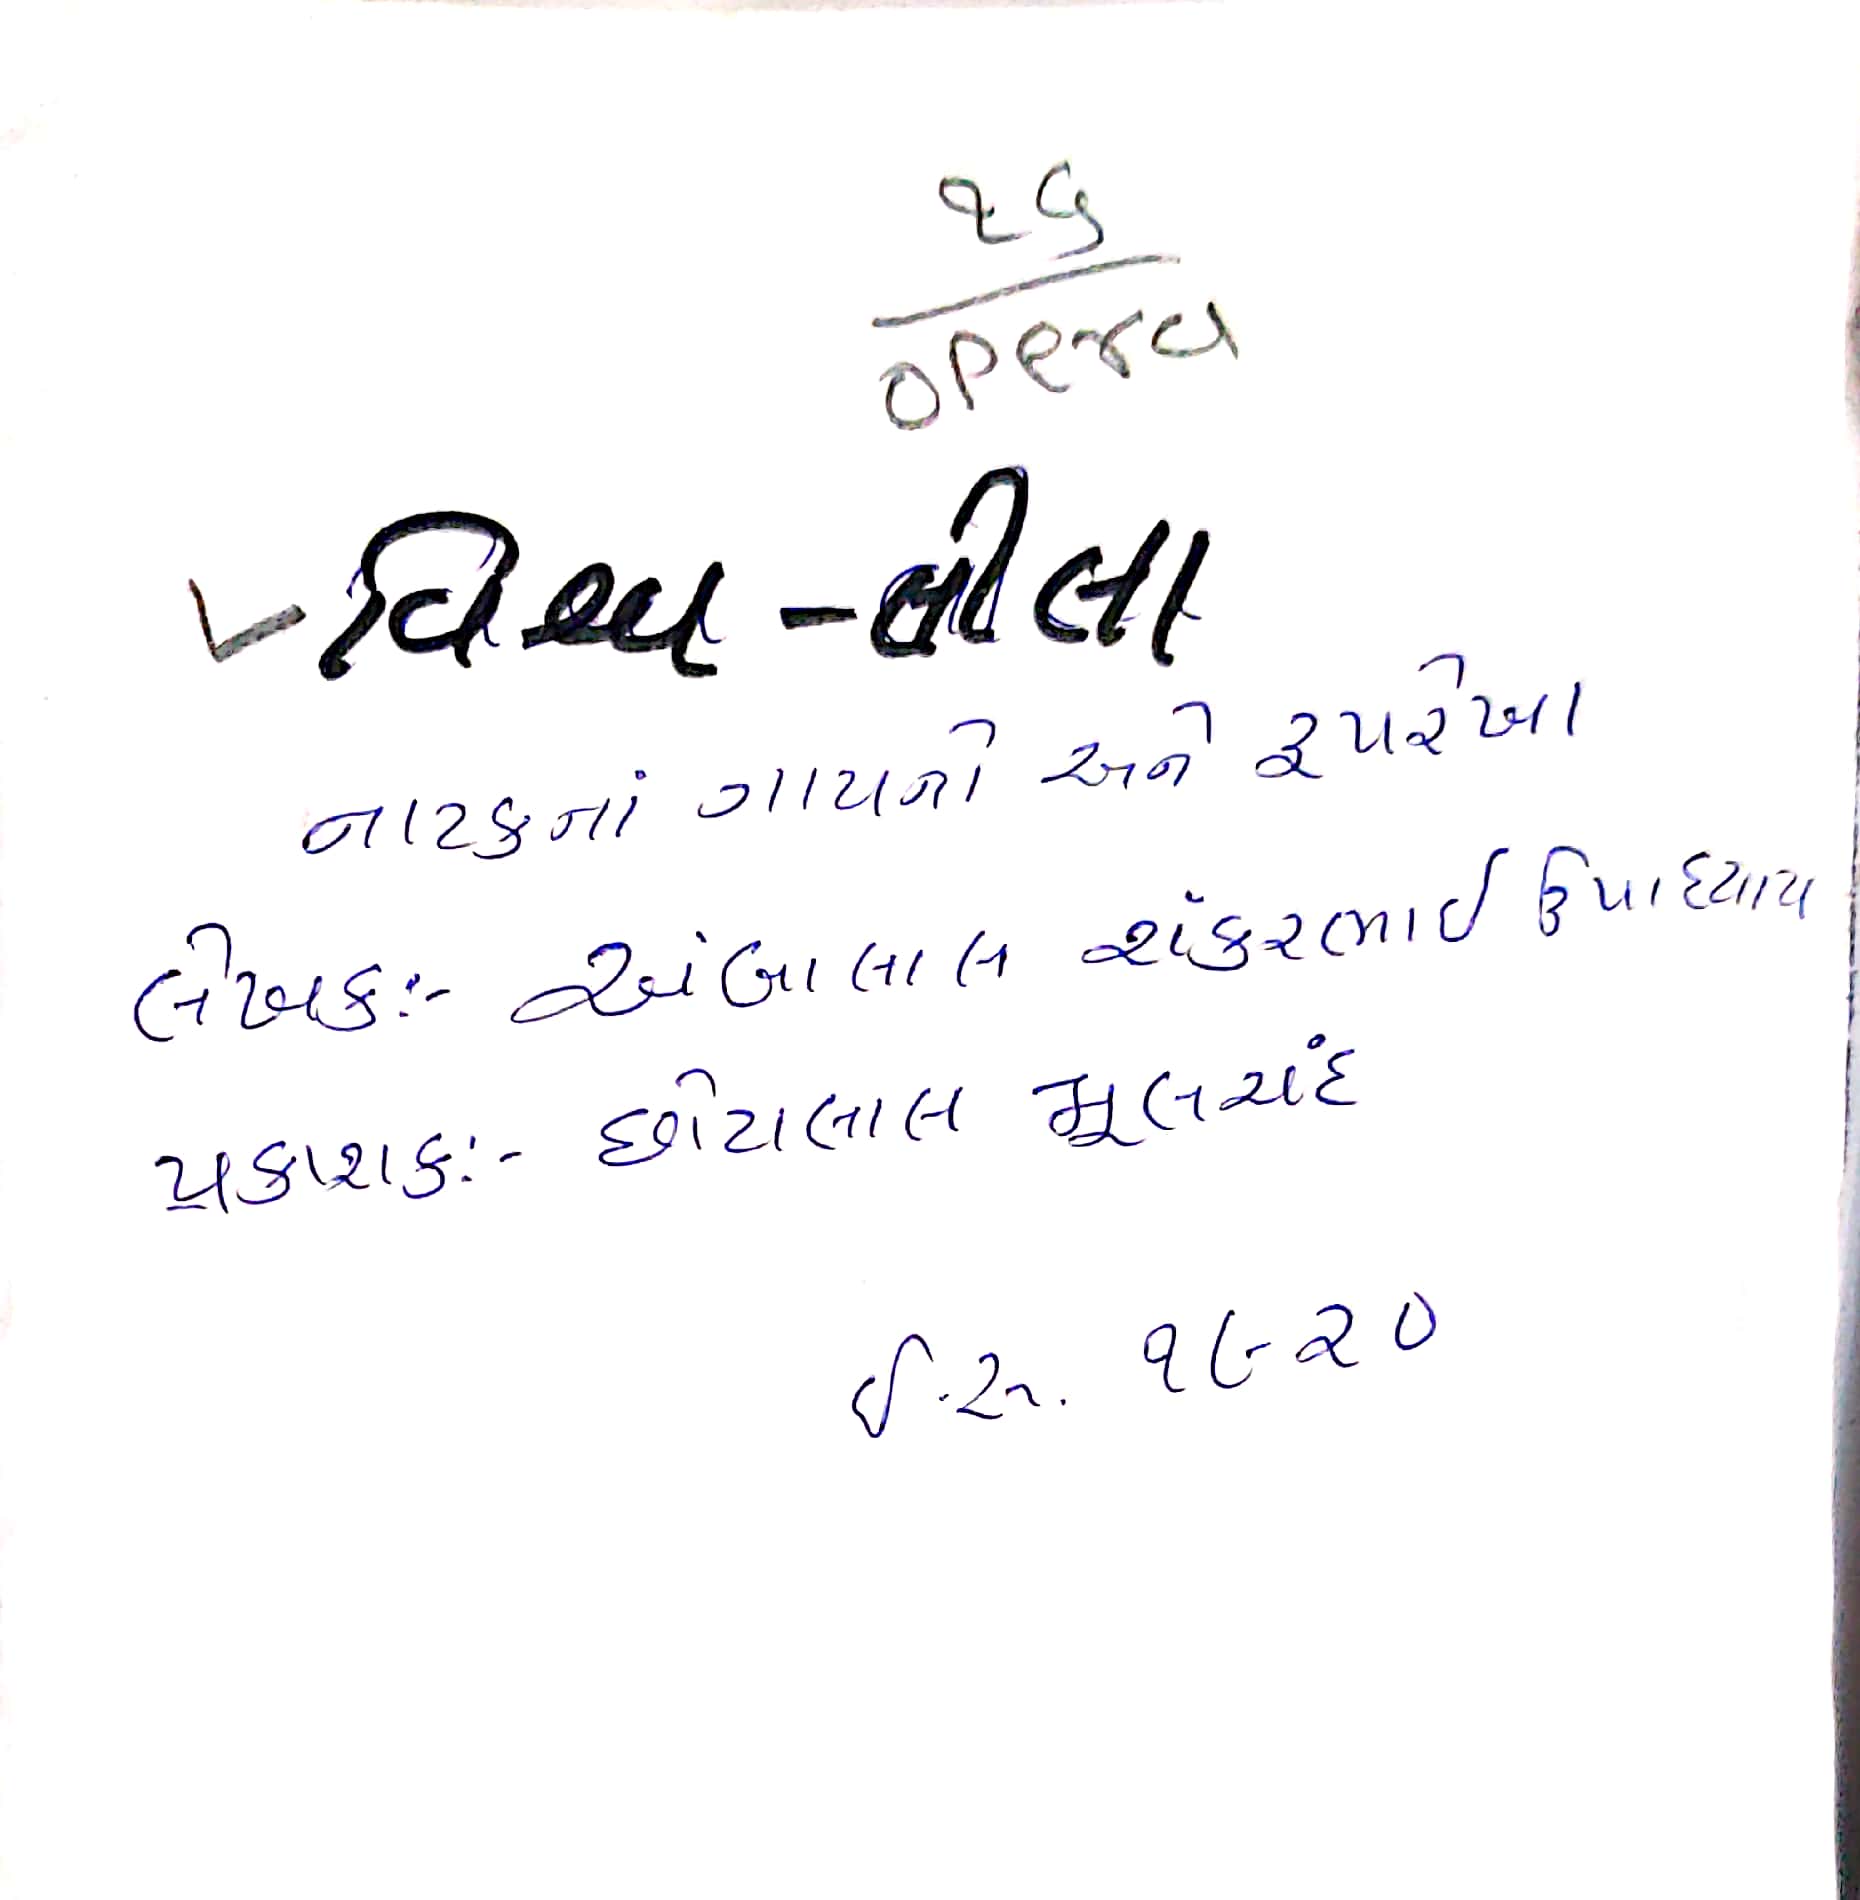 ૨૬
opera
વિશ્વ-લીલા
નાટકનાં ગાયનો અને રૂપરેખા
લેખક:- અંબાલાલ શંકરભાઈ ઉપાધ્યાય
પ્રકાશક:- છોટાલાલ મૂલચંદ
ઈ.સ. ૧૯૨૦